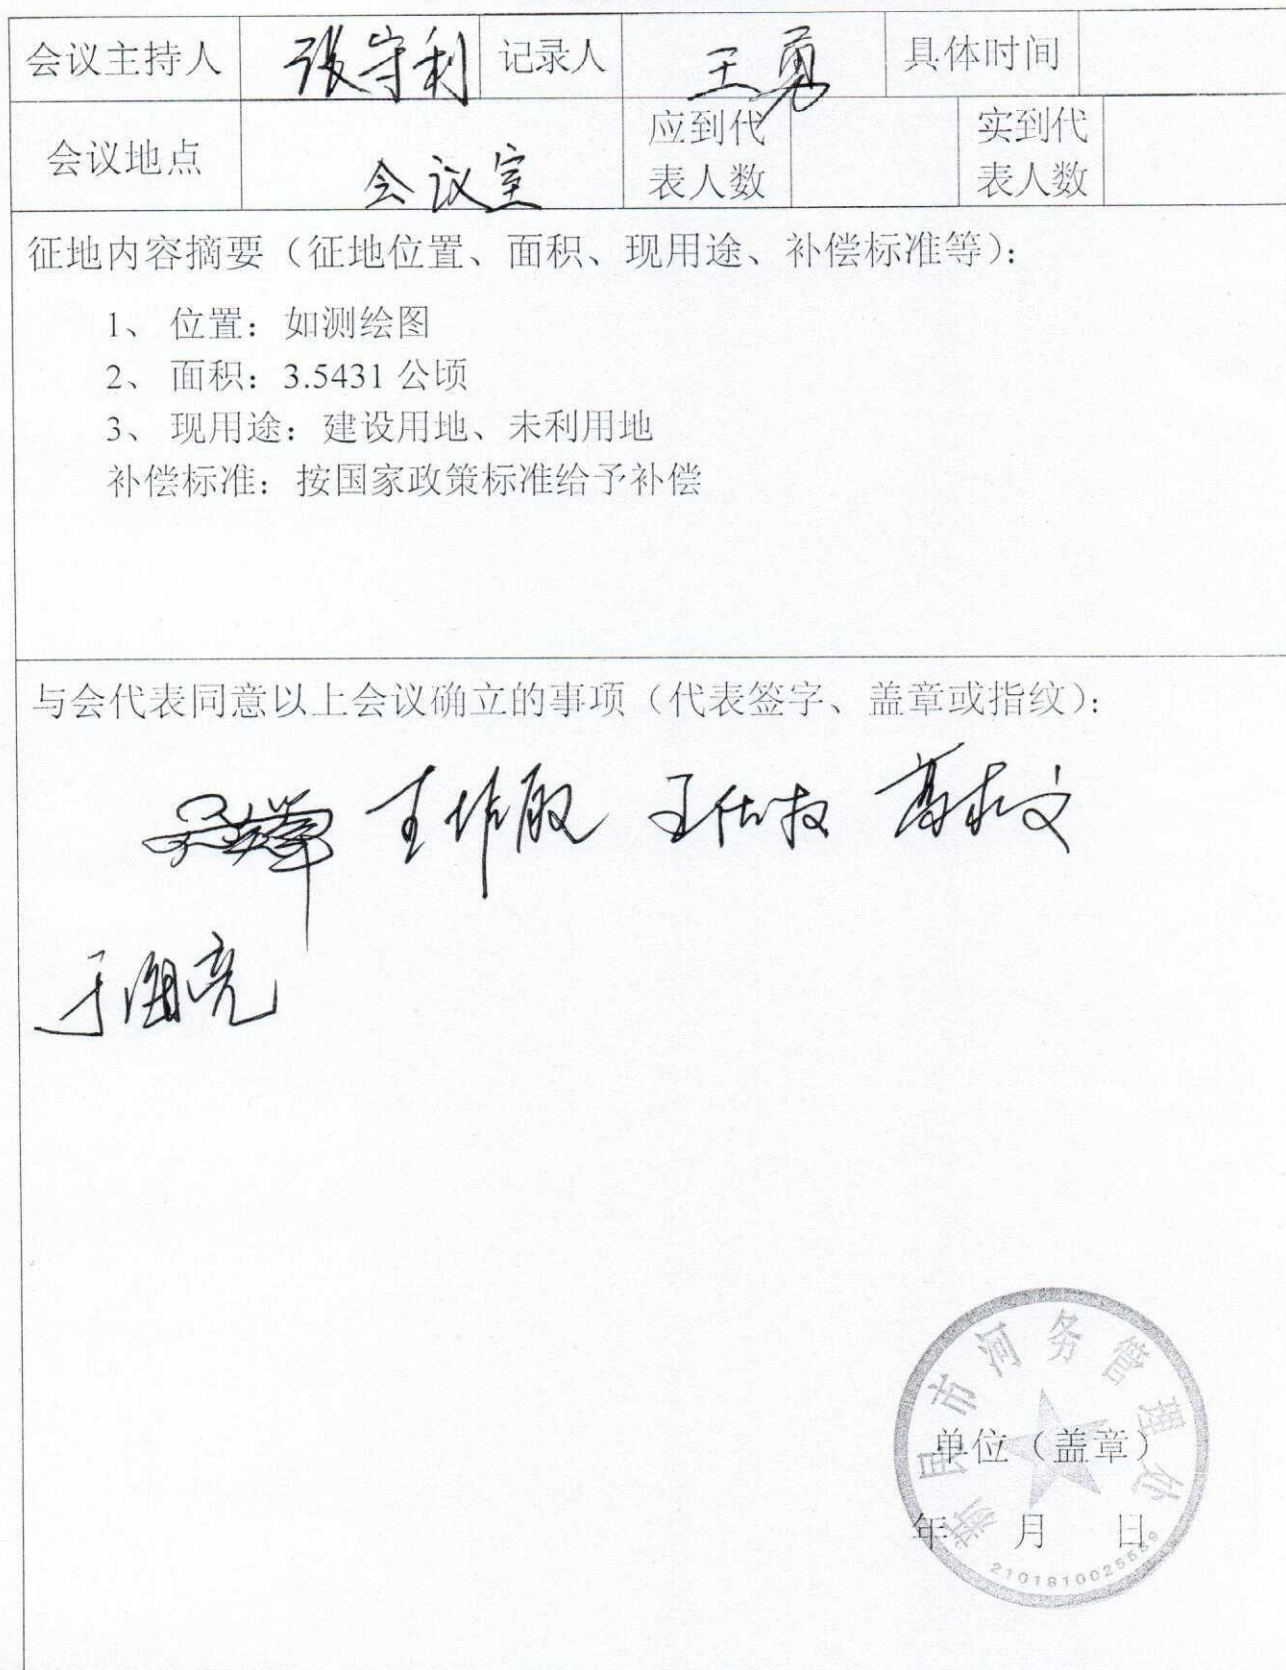 会议主持人 张守利 记录人 王勇 具体时间
会议地点 会议室 应到代表人数 实到代表人数
征地内容摘要（征地位置、面积、现用途、补偿标准等）：
1、 位置：如测绘图
2、 面积：3.5431 公顷
3、 现用途：建设用地、未利用地
补偿标准：按国家政策标准给予补偿
与会代表同意以上会议确立的事项（代表签字、盖章或指纹）：
于海亮
新民市河务管理处
单位（盖章）
年 月 日